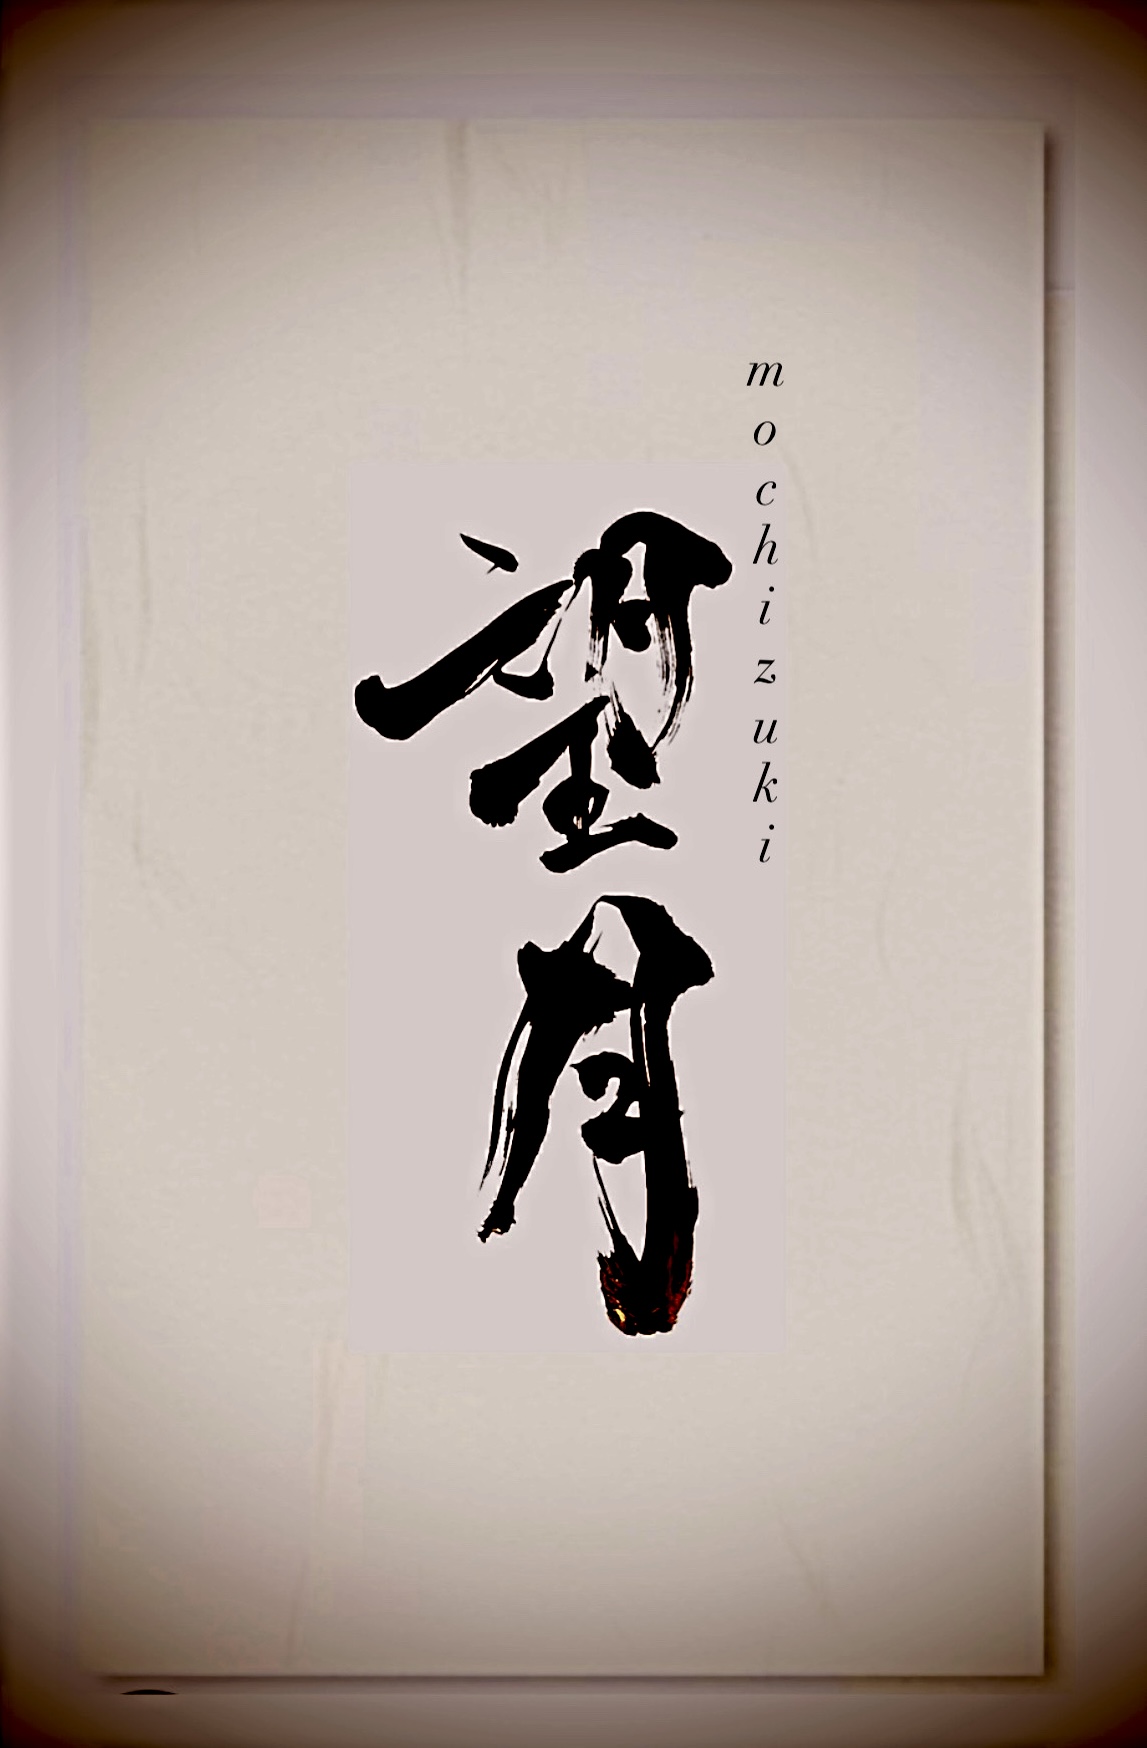 mochizuki
望月